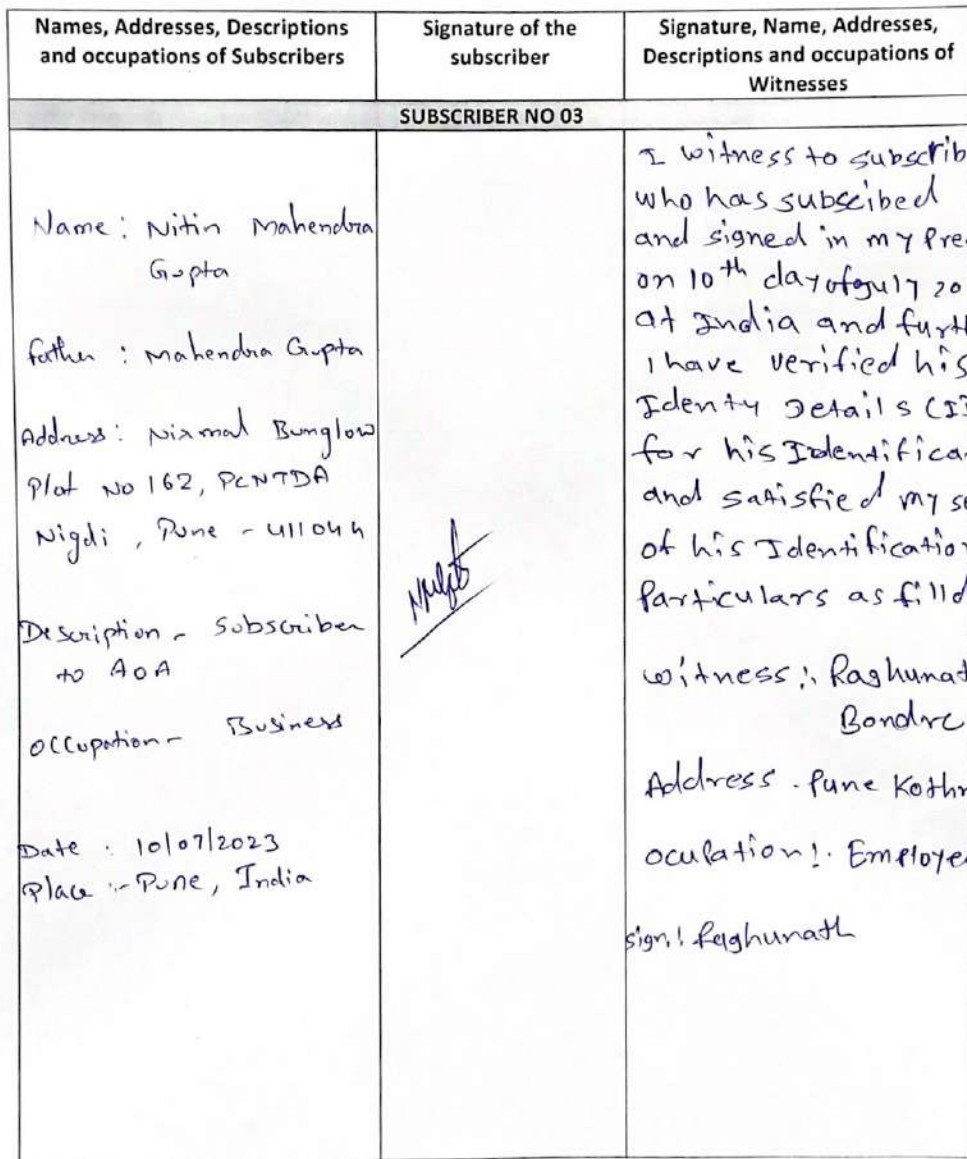 Names, Addresses, Descriptions
and occupations of Subscribers
Signature of the
subscriber
Signature, Name, Addresses,
Descriptions and occupations of
Witnesses
SUBSCRIBER NO 03
Name : Nitin Mahendra
Gupta
father : Mahendra Gupta
Address : Nirmal Bunglow
Plot No 162, PCNTDA
Nigdi , Pune - 411044
Description - Subscriber
to AOA
Occupation - Business
Date : 10/07/2023
Place :- Pune, India
I witness to subscrib
who has subscibed
and signed in my Pre
on 10th day of July 20
at India and furth
I have verified his
Identy Details (I
for his Identifica
and satisfied my se
of his Identification
Particulars as filld
witness :. Raghunat
Bondre
Address . Pune Kothr
oculation :. Employe
sign : Raghunath